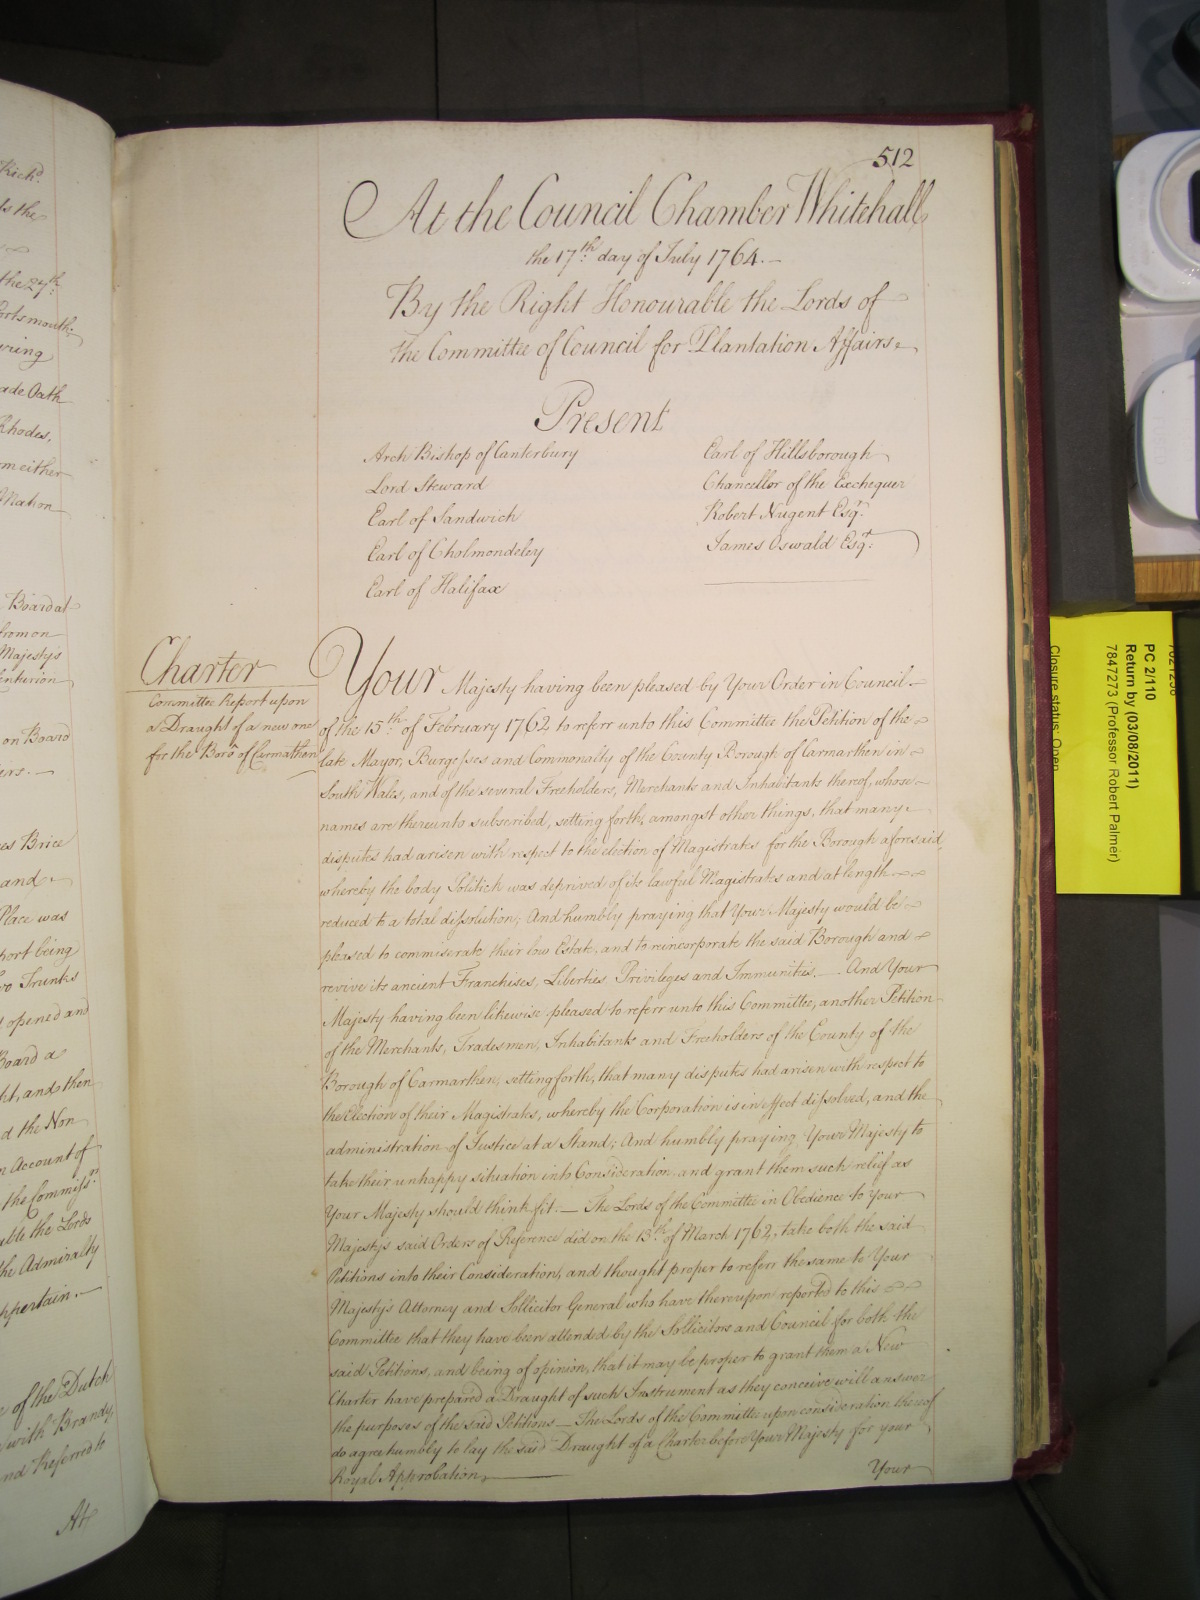 512
At the Council Chamber Whitehall
the 17th. day of July 1764.—
By the Right Honourable the Lords of
the Committee of Council for Plantation Affairs.
Present
Arch Bishop of Canterbury
Lord Steward
Earl of Sandwich
Earl of Cholmondeley
Earl of Halifax
Earl of Hillsborough
Chancellor of the Exchequer
Robert Nugent Esqr.
James Oswald Esqr.
Charter
Committee Report upon
a Draught of a new one
for the Boro of Carmarthen
Your Majesty having been pleased by Your Order in Council
of the 15th. of February 1762 to referr unto this Committee the Petition of the
late Mayor, Burgesses and Commonalty of the County Borough of Carmarthen in
South Wales, and of the several Freeholders, Merchants and Inhabitants thereof, whose
names are thereunto subscribed, setting forth, amongst other things, that many
disputes had arisen with respect to the election of Magistrates for the Borough aforesaid
whereby the body Politick was deprived of its lawful Magistrates and at length
reduced to a total dissolution; And humbly praying that Your Majesty would be
pleased to commiserate their low Estate, and to reincorporate the said Borough and
revive its ancient Franchises, Liberties, Privileges and Immunities,— And Your
Majesty having been likewise pleased to referr unto this Committee, another Petition
of the Merchants, Tradesmen, Inhabitants and Freeholders of the County of the
Borough of Carmarthen, setting forth, that many disputes had arisen with respect to
the Election of their Magistrates, whereby the Corporation is in effect dissolved, and the
administration of Justice at a Stand; And humbly praying Your Majesty to
take their unhappy situation into Consideration, and grant them such relief as
Your Majesty should think fit.— The Lords of the Committee in Obedience to Your
Majestys said Orders of Reference did on the 13th. of March 1762, take both the said
Petitions into their Consideration, and thought proper to referr the same to Your
Majesty's Attorney and Sollicitor General who have thereupon reported to this
Committee that they have been attended by the Sollicitors and Council for both the
said Petitions, and being of opinion, that it may be proper to grant them a New
Charter have prepared a Draught of such Instrument as they conceive will answer
the purposes of the said Petitions— The Lords of the Committee upon consideration thereof
do agree humbly to lay the said Draught of a Charter before Your Majesty for your
Royal Approbation,
Your
Richd.
the 27th.
Portsmouth;
Oath
Rhodes,
either
Mahon
Board at
from on
Majesty's
Centurion
on Board
Brice
and
Place was
being
Trunks
opened and
Board a
and then
the Non
Account of
the Commissrs
the Lords
the Admiralty
appertain.—
of the Dutch
with Brandy,
and Referred to
At
PC 2/110
Return by (03/08/2011)
7847273 (Professor Robert Palmer)
Closure status: Open